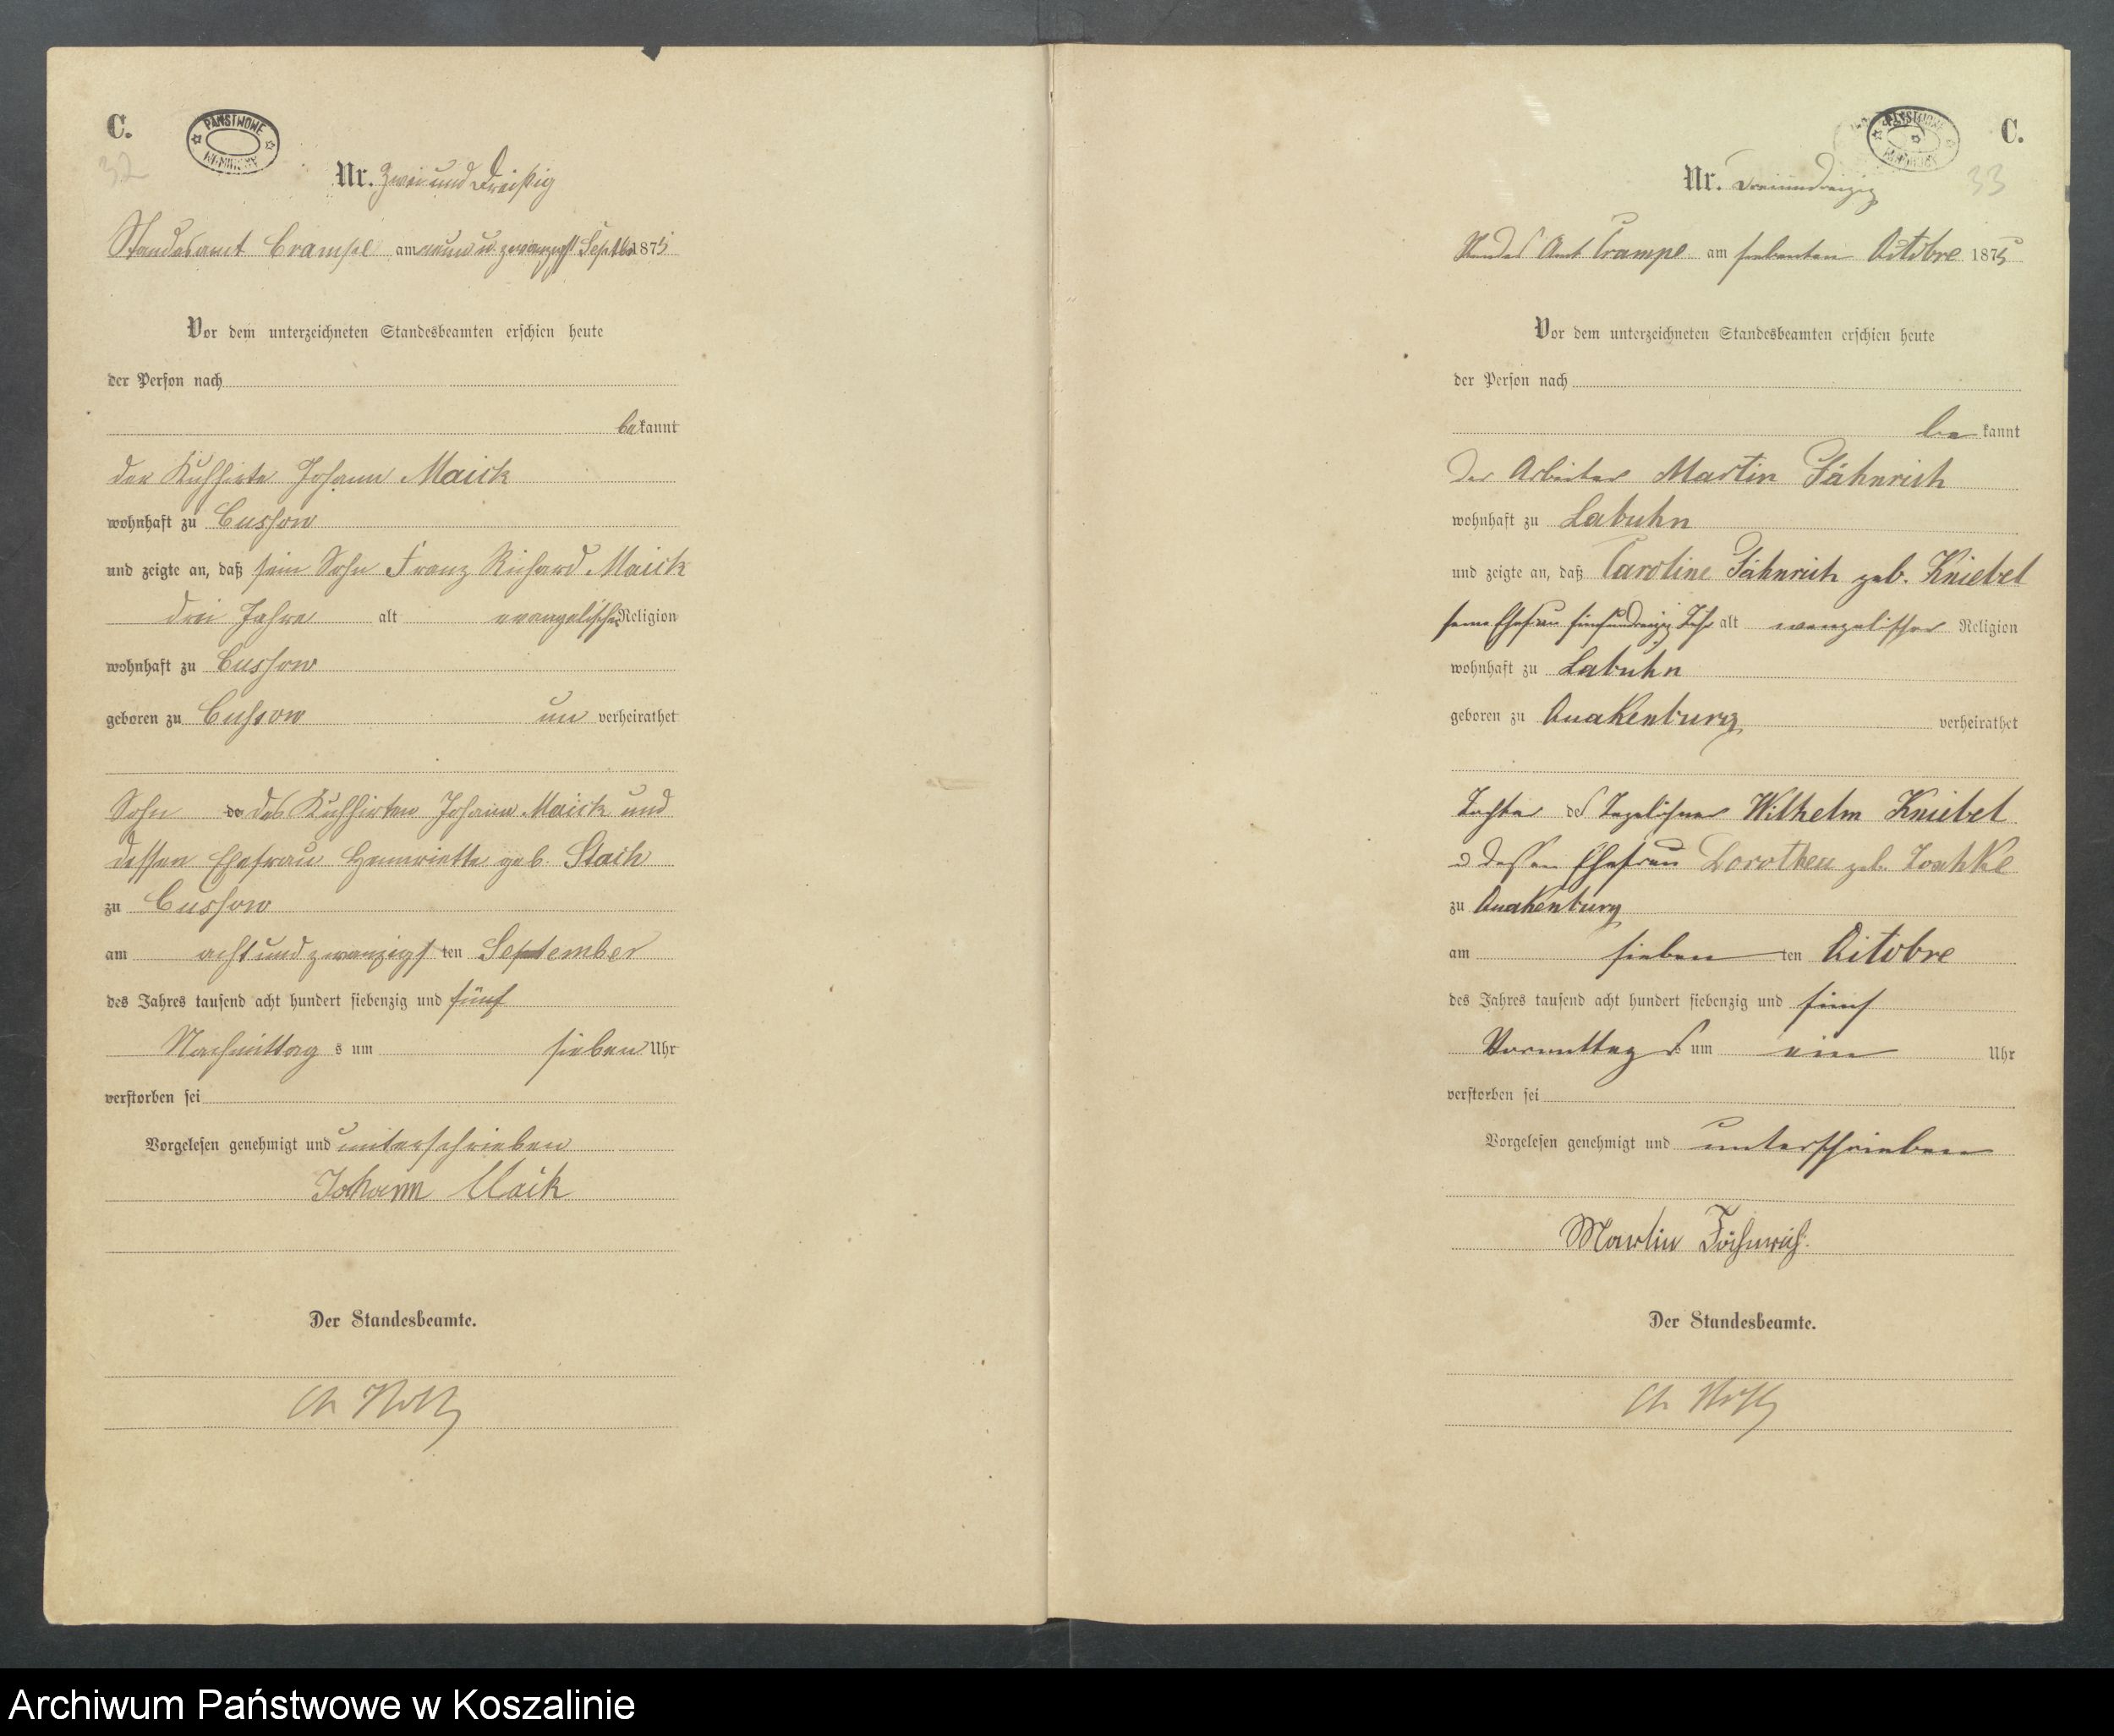 C.
PAŃSTWOWE
32
Nr. Zwei und Dreißig
Standesamt Crampe am neun u. zwanzigst Septbr 1875
Vor dem unterzeichneten Standesbeamten erschien heute
der Person nach
bekannt
der Kuhhirte Johann Maick
wohnhaft zu Cussow
und zeigte an, daß sein Sohn Franz Richard Maick
drei Jahre alt evangelischer Religion
wohnhaft zu Cussow
geboren zu Cussow un verheirathet
Sohn de des Kuhhirten Johann Maick und
dessen Ehefrau Hennriette geb. Stach
zu Cussow
am acht und zwanzigs ten September
des Jahres tausend acht hundert siebenzig und fünf
Nachmittag s um sieben Uhr
verstorben sei
Vorgelesen genehmigt und unterschrieben
Johann Maik
Der Standesbeamte.
C.
33
Nr. Dreiunddreizig
Standes Amt Crampe am siebenten Octobre 1875
Vor dem unterzeichneten Standesbeamten erschien heute
der Person nach
be kannt
Der Arbeiter Martin Fähnrich
wohnhaft zu Labuhn
und zeigte an, daß Caroline Fähnrich geb. Kniebel
seine Ehefrau fünfunddreizig Jahr alt evangelischer Religion
wohnhaft zu Labuhn
geboren zu Quakenburg verheirathet
Tochter des Tagelöhner Wilhelm Kniebel
u dessen Ehefrau Dorothea geb.
zu Quakenburg
am sieben ten Octobre
des Jahres tausend acht hundert siebenzig und fünf
Vormittag s um ein Uhr
verstorben sei
Vorgelesen genehmigt und unterschrieben
Martin Fähnrich.
Der Standesbeamte.
Archiwum Państwowe w Koszalinie